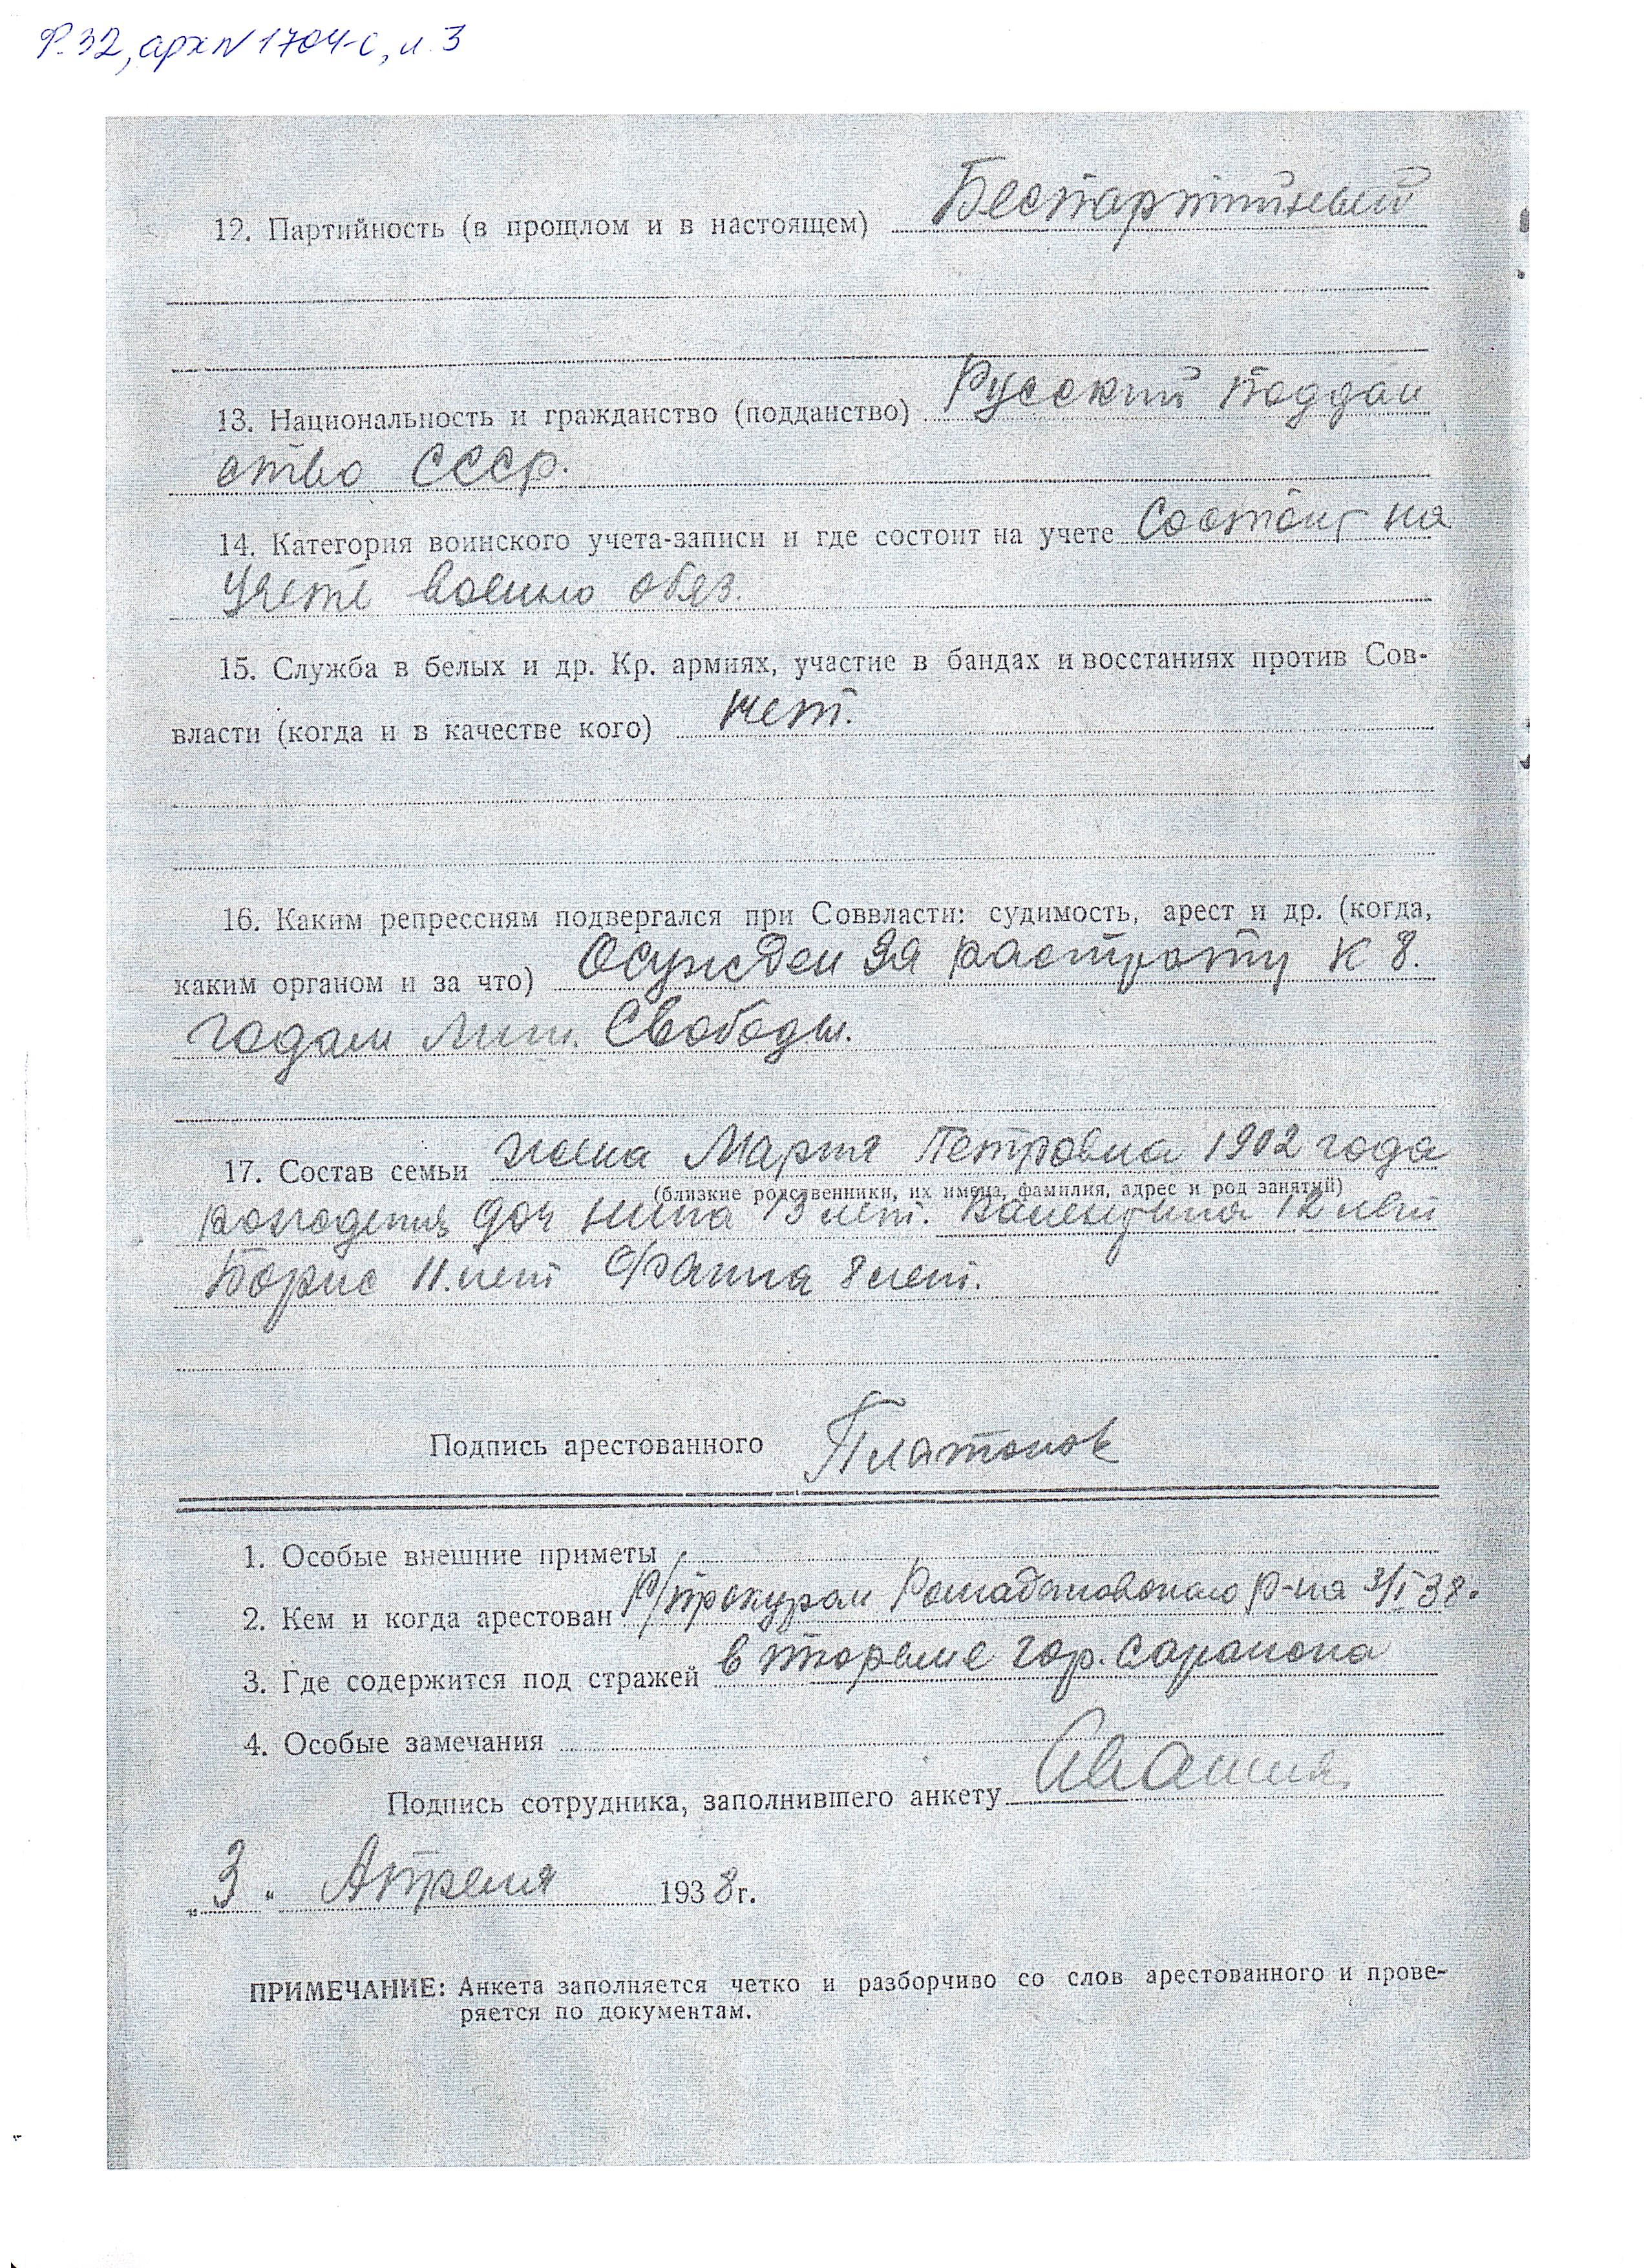 Ф.32, арх№1704-с, л.3
12. Партийность (в прошлом и в настоящем) Беспартийный
13. Национальность и гражданство (подданство) Русский поддан
ство СССР.
14. Категория воинского учета-записи и где состоит на учете Состоит на
учете военно обяз.
15. Служба в белых и др. Кр. армиях, участие в бандах и восстаниях против Сов-
власти (когда и в качестве кого) нет.
16. Каким репрессиям подвергался при Соввласти: судимость, арест и др. (когда,
каким органом и за что) Осужден за растрату к 8.
годам лиш. Свободы.
17. Состав семьи жена Мария Петровна 1902 года
(близкие родственники, их имена, фамилия, адрес и род занятий)
рождения доч Нина 13 лет. Валентина 12 лет
Борис 11. лет Фаина 8 лет.
Подпись арестованного Платонов
1. Особые внешние приметы
2. Кем и когда арестован Р/прокуром Ромадановского р-на 3/I 38.
3. Где содержится под стражей в тюрьме гор. Саранска
4. Особые замечания
Подпись сотрудника, заполнившего анкету
„3" Апреля 1938 г.
ПРИМЕЧАНИЕ: Анкета заполняется четко и разборчиво со слов арестованного и прове-
ряется по документам.